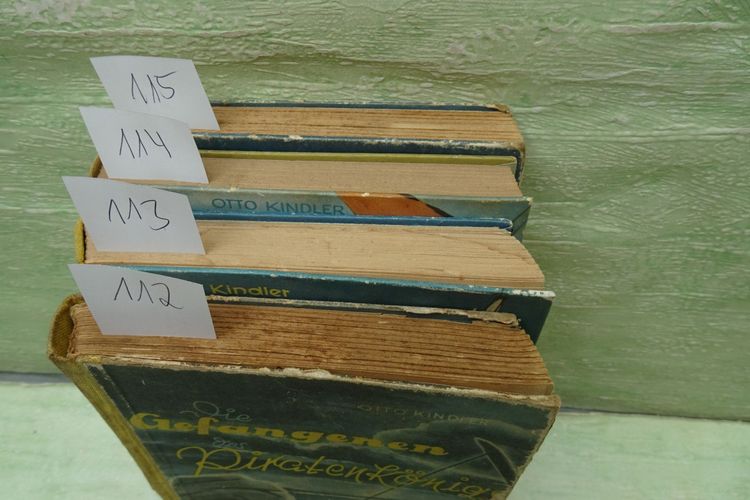 115
114
OTTO KINDLER
113
Kindler
112
OTTO KINDLER
Die
Gefangenen
des
Piratenkönigs